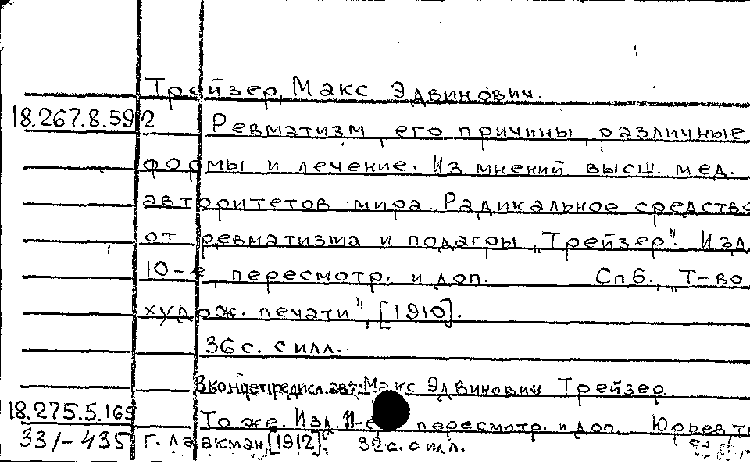 Трейзер, Макс Эдвинович.
18.267.8.592 Ревматизм, его причины, различные
формы и лечение. Из мнений высш. мед.
авторитетов мира. Радикальное средство
от ревматизма и подагры „Трейзер". Изд.
10-е, пересмотр. и доп. Спб., Т-во
худож. печати", [1910].
36 с. с илл.
В конце предисл. авт: Макс Эдвинович Трейзер
18.275.5.165 То же. Изд. 11-е пересмотр. и доп. Юрьев, т
33/-435 г. Лаакман, [1912]. 32 с. с илл.